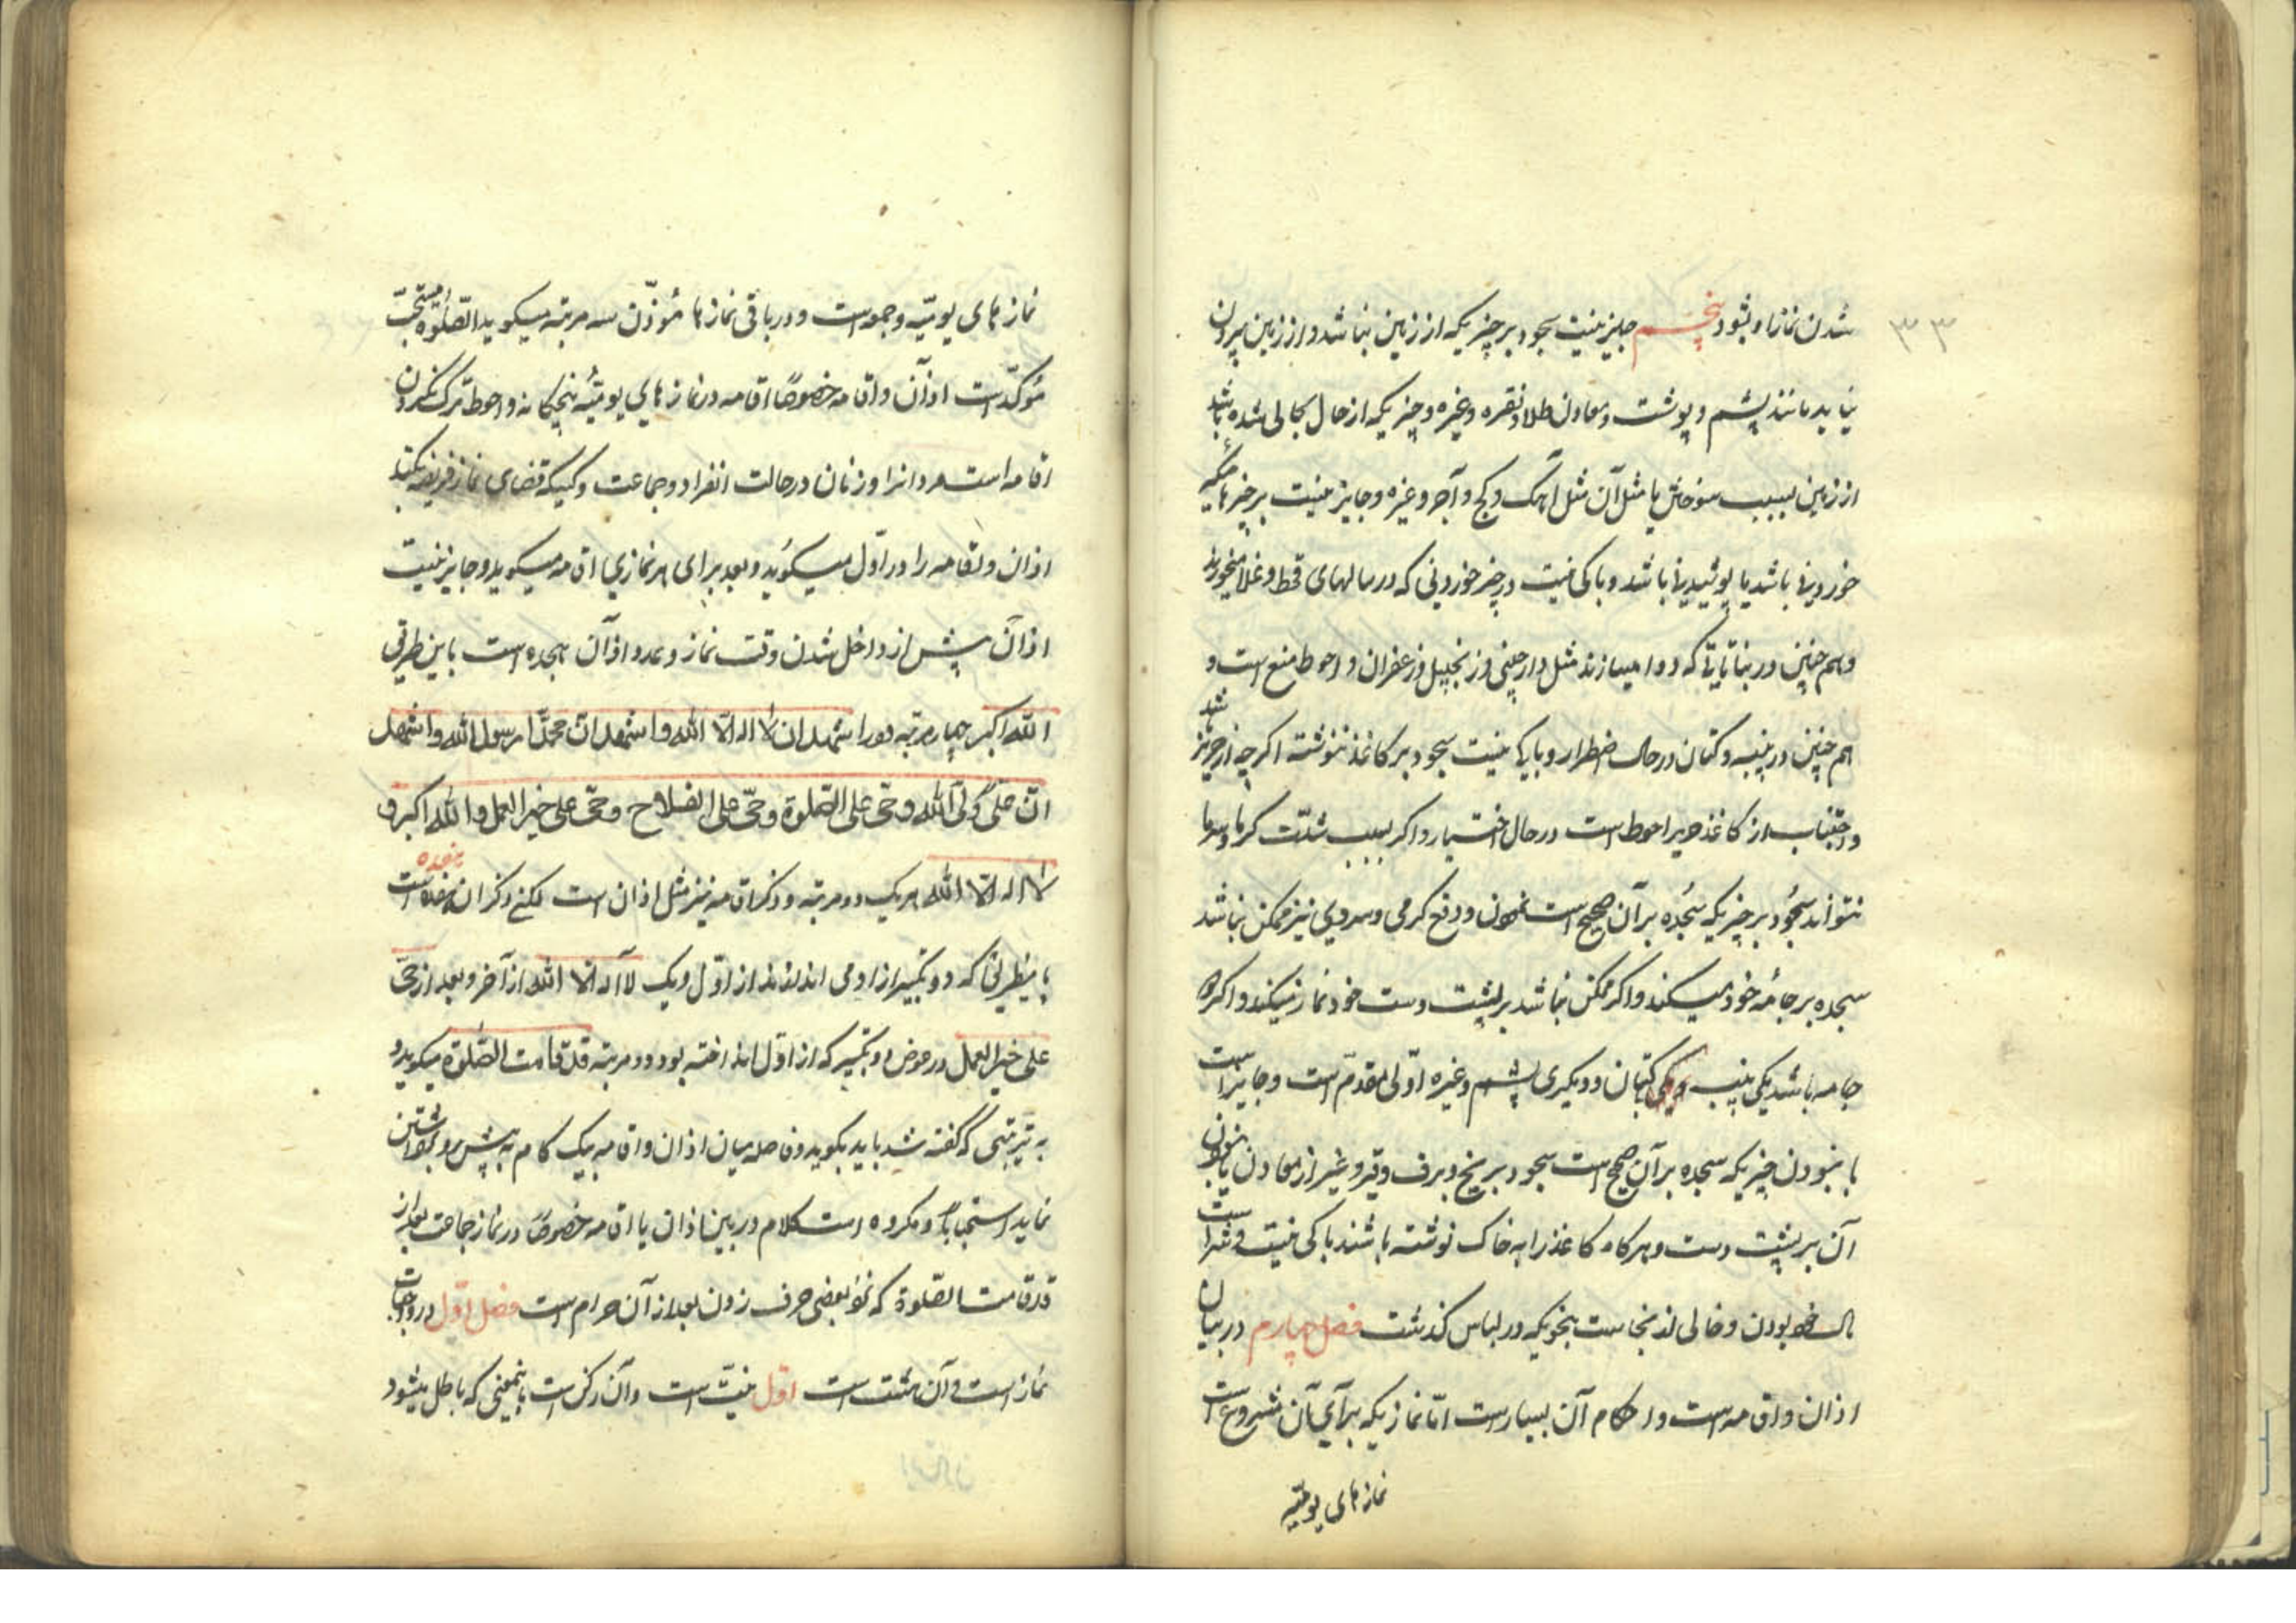 ۳۳
شدن نماز او بشود پنجم جایز نیست سجود بر چیزیکه از زمین نباشد و از زمین بیرون
نیاید مانند پشم و پوست و معادن طلا و نقره و غیره و چیزیکه از حال بحالی شده باشد
از زمین بسبب سوختن یا مثل آن مثل آهک و کچ و آجر و غیره و جایز نیست بر چیزهائیکه
خوردینها باشد یا پوشیدینها باشد و باکی نیست در چیز خوردنی که در سالهای قحط و غلا میخورند
و هم چنین در نباتاتی که دوا میسازند مثل دارچینی و زنجبیل و زعفران و احوط منع است و
هم چنین در پنبه و کتان در حال اضطرار و باکی نیست سجود بر کاغذ ننوشته اکرچه از حریر باشد
و اجتناب از کاغذ حریر احوط است در حال اختیار و اکر بسبب شدّت کرما و سرما
نتواند سجُود بر چیزیکه سُجده برآن صحیح است نمودن و دفع کرمی و سردی نیز ممکن نباشد
سجده بر جامُه خود میکند و اکر ممکن نباشد بر پشت دست خود نماز میکند و اکر دو
جامه باشد یکی پنبه و یکی کتان و دیکری پشم و غیره اوّلی مقدّم است و جایز است
با نبودن چیزیکه سجده برآن صحیح است سجود بر یخ و برف و قیر و غیر از معادن یا نبودن
آن بر پشت دست و هرکاه کاغذ را به خاک نوشته باشند باکی نیست و شرط است
پاک بودن و خالی از نجاست بنحویکه در لباس کذشت فصل چهارم در بیان
اذان و اقامه است و احکام آن بسیار است امّا نمازیکه برای آن مشروع است
نمازهای یومیّه
نمازهای یومیّه و جمعه است و در باقی نمازها مُؤذّن سه مرتبه میکوید الصّلوة مستحبّ
مُؤکدّ است اذان و اقامه خصوصًا اقامه در نمازهای یومیّه پنجکانه و احوط ترک نکردن
اقامه است مردانرا و زنان در حالت انفراد و جماعت و کسیکه قضای نماز فریضه میکند
اذان و اقامه را در اوّل میکوید و بعد برای هر نمازی اقامه میکوید و جایز نیست
اذان پیش از داخل شدن وقت نماز و عدد اذان هجده است باین طریق
اللّه اکبر چهار مرتبه دو را اشهد ان لا اله الّا اللّه و اشهد انّ محمّدًا رسول اللّه و اشهد
انّ علیّ ولیّ اللّه و حیّ علی الصّلوة و حیّ علی الفلاح و حیّ علی خیر العمل و اللّه اکبر و
لا اله الّا اللّه هر یک دو مرتبه و ذکر اقامه نیز مثل اذان است لکن ذکر ان هفده است
باینطریق که دو تکبیر از او می اندازند از اوّل و یک لا اله الّا اللّه از آخر و بعد از حیّ
علی خیر العمل در عوض دو تکبیر که از اوّل انداخته بود دو مرتبه قد قامت الصّلوة میکوید و
به ترتیبی که گفته شد باید بکوید و فاصله میان اذان و اقامه بیک کام به پیش و
نماید استحبابا و مکروه است کلام در بین اذان یا اقامه خصوصًا در نماز جماعت بعد از
قد قامت الصّلوة که نحو بعضی حرف زدن بعد از آن حرام است فصل اوّل در واجبات
نماز است و آن هشت است اوّل نیّت است و آن رکن است باینمعنی که باطل میشود